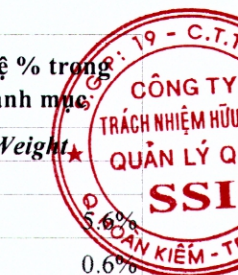 ệ % trong
anh mục
Weight
5.6%
0.6%
19 - C.T.
CÔNG TY
TRÁCH NHIỆM HỮU
QUẢN LÝ Q
SSI
KIẾM - T